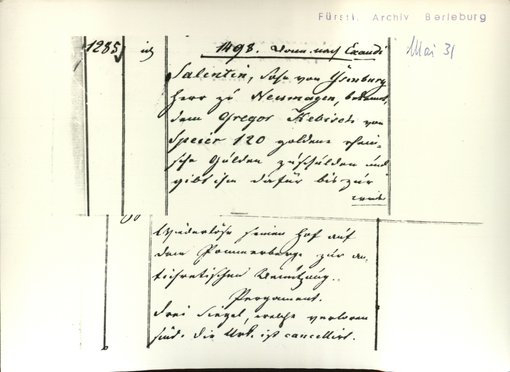 Fürstl. Archiv Berleburg
Mai 31
1285
1498. Donn. nach Exaudi
Salentin, Sohn von Ysenburg,
Herr zu Neumagen, bekennt,
dem Gregor von
Speier 120 goldene rhein-
ische Gulden zu schulden und
gibt ihm dafür bis zur
Wiederlöse seinen Hof auf
dem Pommerberge zur an-
tichretischen Benützung.
Pergament.
Drei Siegel, welche verloren
sind. die Urk. ist cancellirt.